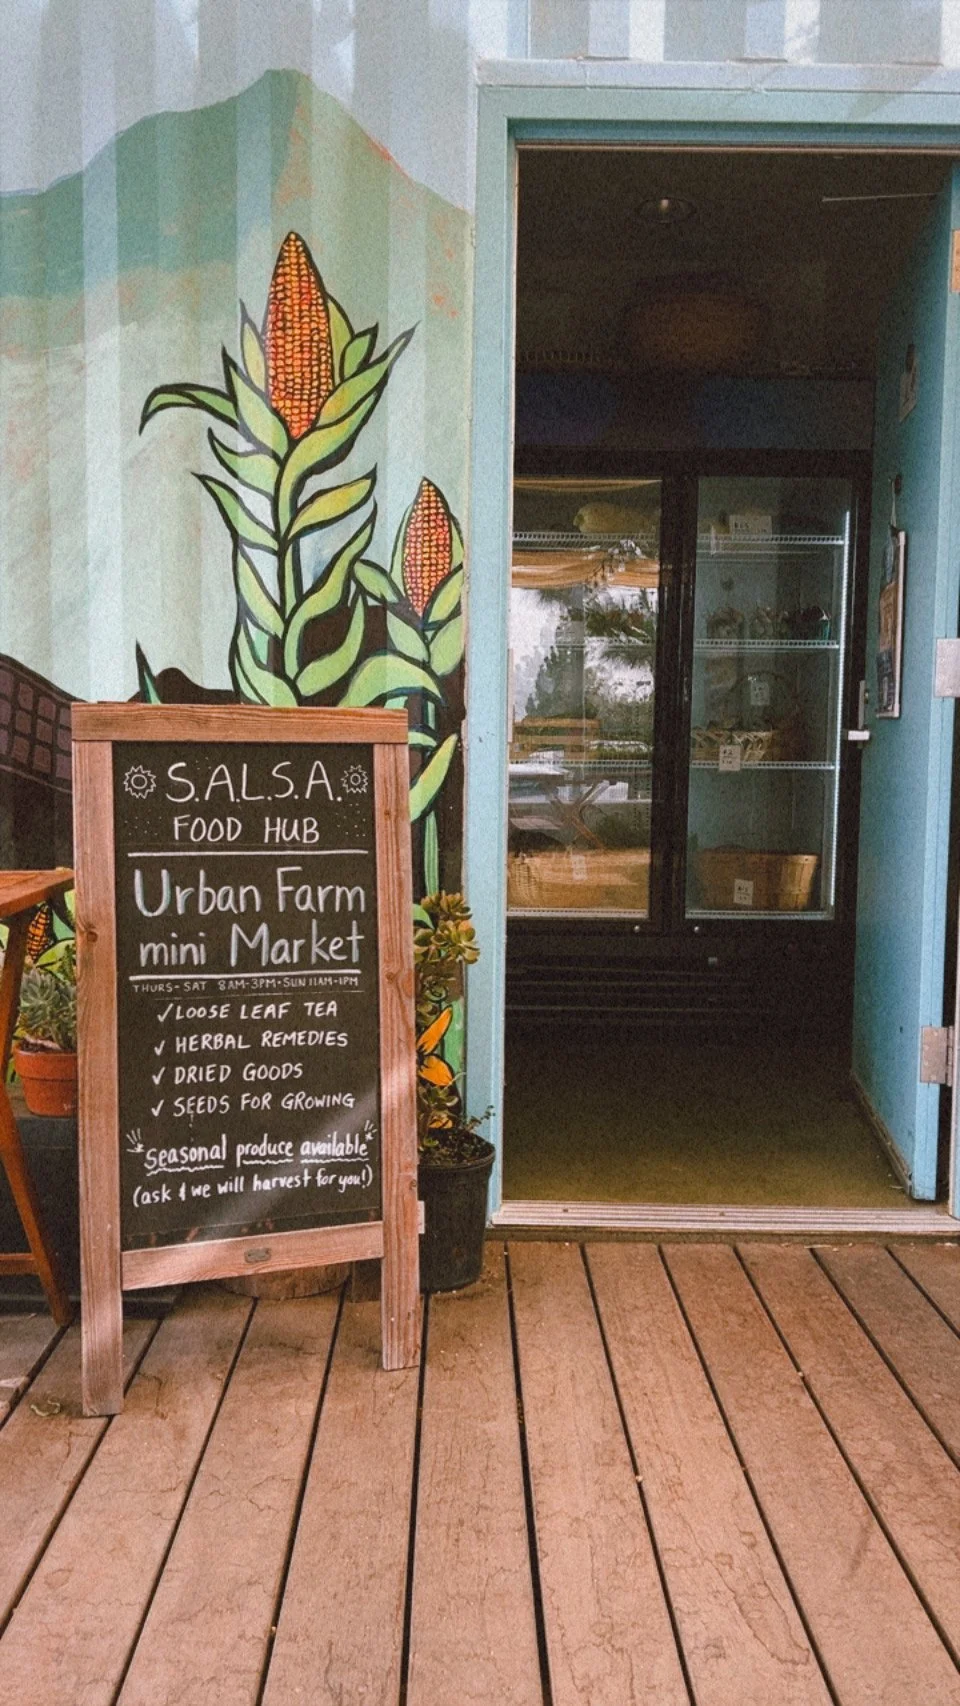 S.A.L.S.A.
FOOD HUB
Urban Farm
mini Market
THURS-SAT 8AM-3PM • SUN 11AM-1PM
✓LOOSE LEAF TEA
✓ HERBAL REMEDIES
✓ DRIED GOODS
✓ SEEDS FOR GROWING
Seasonal produce available
(ask & we will harvest for you!)